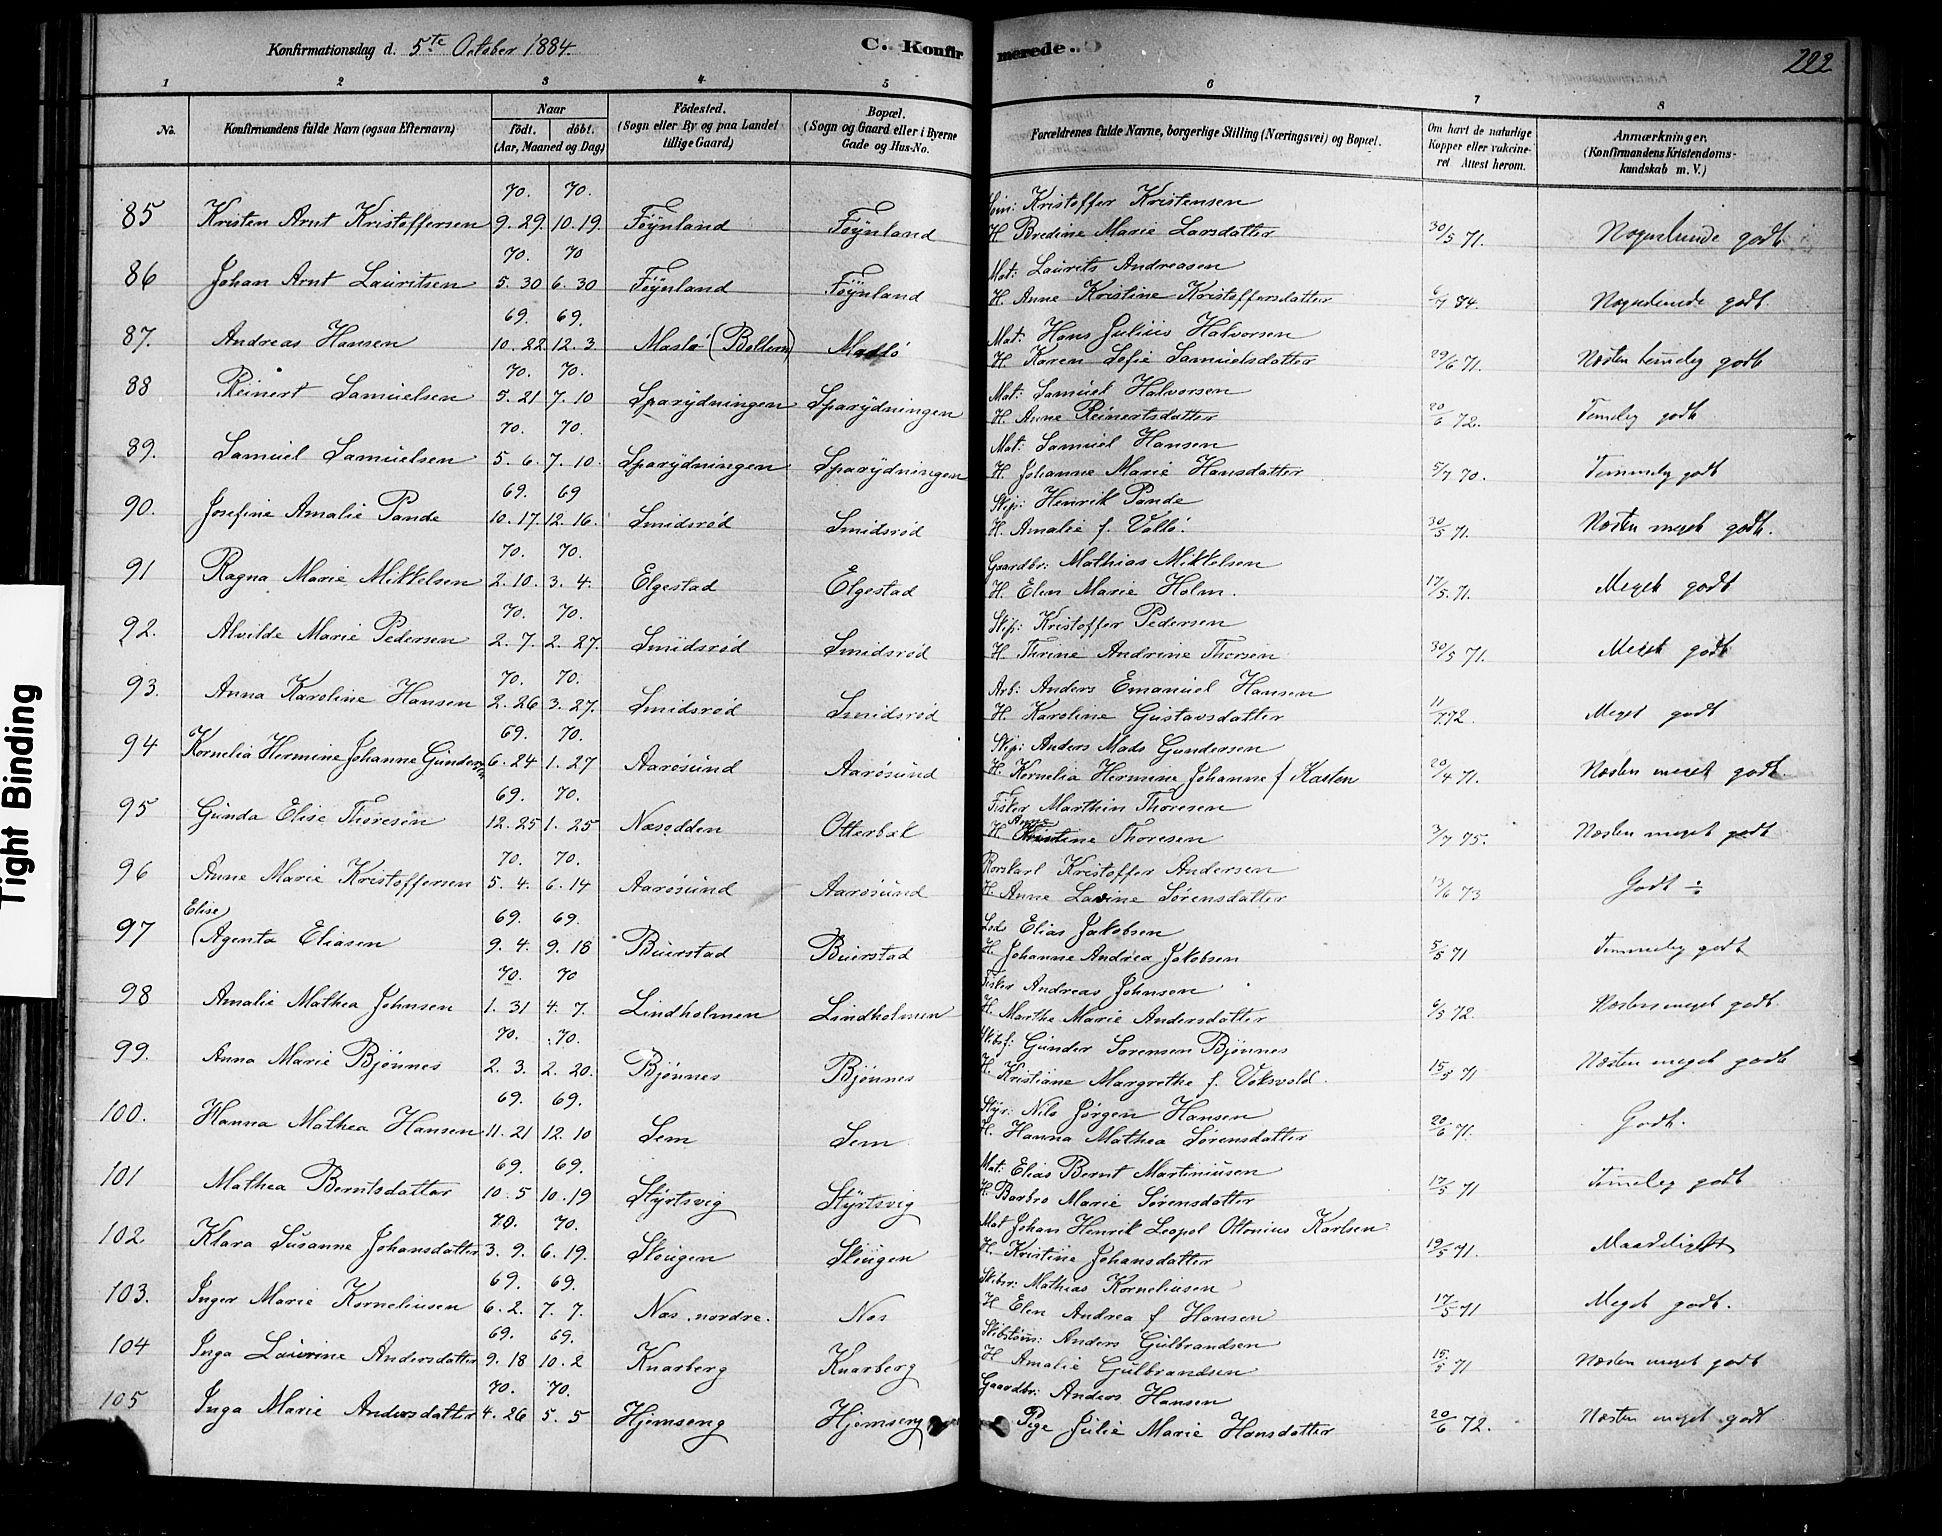 Konfirmationsdag d. 5te October 1884.
C. Konfirmerede.
222
1 2 3 4 5 6 7 8
No. | Konfirmandens fulde Navn (ogsaa Efternavn) | Naar født. døbt. (Aar, Maaned og Dag) | Födested. (Sogn eller By og paa Landet tillige Gaard) | Bopæl. (Sogn og Gaard eller i Byerne Gade og Hus-No. | Forældrenes fulde Navne, borgerlige Stilling (Næringsvei) og Bopæl. | Om havt de naturlige Kopper eller vakcineret. Attest herom. | Anmærkninger. (Konfirmandens Kristendomskundskab m. V.)
85 Kristen Arnt Kristoffersen 70. 9. 29. 70. 10. 19. Föynland Föynland Kristoffer Kristensen
H. Bredine Marie Larsdatter 30/5 71. godt
86 Johan Arnt Lauritsen 70. 5. 30 70 6. 30 Föynland Föynland Mat: Laurits Andreasen
H. Anne Kristine Kristoffersdatter 6/7 84. godt.
87. Andreas Hansen 69. 10. 22 69. 12. 3 Maslö (Bollern) Maslö Mat: Hans Julius Halvorsen
H. Karen Sofie Samuelsdatter 29/6 71. Næsten temmelig godt
88 Reinert Samuelsen 70. 5. 21 70. 7. 10 Sparydningen Sparydningen Mat: Samuel Halvorsen
H. Anne Reinertsdatter 20/6 72. Temelig godt
89. Samuel Samuelsen 70. 5. 6. 70. 7. 10. Sparydningen Sparydningen Mat: Samuel Hansen
H. Johanne Marie Hansdatter 5/7 70. Temmelig godt
90. Josefine Amalie Pande 69. 10. 17. 69 12. 16. Smidsrød Smidsrød Skip: Henrik Pande
H. Amalie f. Vallö. 30/5 71. Næsten meget godt.
91 Ragna Marie Mikkelsen 70. 2. 10. 70. 3. 4. Elgestad Elgestad Gaardbr: Mathias Mikkelsen
H. Elen Marie Holm. 17/5. 71. Meget godt
92. Alvilde Marie Pedersen 70. 2. 7. 70. 2. 27. Smidsrød Smidsrød Skip: Kristoffer Pedersen
H. Thrine Andrine Thorsen 30/5 71. Meget godt
93. Anna Karoline Hansen 70. 2. 26 70. 3. 27. Smidsrød Smidsrød Arb: Anders Emanuel Hansen
H. Karoline Gustavsdatter 11/7 72. Meget godt
94 Kornelia Hermine Johanne Gundersen 69. 6. 24 70. 1. 27 Aarøsund Aarøsund Skip: Anders Mads Gundersen
H. Kornelia Hermine Johanne f Kasten 20/4 71. Næsten meget godt.
95 Gunda Elise Thoresen 69. 12. 25 70. 1. 25 Næsodden Otterbæk Fisker Marthin Thoresen
H. Anne Thoresen 3/7 75. Næsten meget godt
96 Anne Marie Kristoffersen 70. 5. 4. 70. 6. 14 Aarösund Aarösund Rorskarl Kristoffer Andersen
H. Anne Lavine Sørensdatter 13/6 73 Godt ÷
97 Elise (Agenta Eliasen 69. 9. 4. 69. 9. 18 Buerstad Buerstad Lods Elias Jakobsen
H. Johanne Andrea Jakobsen 5/5 71 Temmelig godt
98 Amalie Mathea Johnsen 70. 1. 31 70 4. 7. Lindholmen Lindholmen Fisker Andreas Johnsen
H. Marthe Marie Andersdatter 6/5 72. Næsten meget godt.
99. Anna Marie Bjönnes 70. 2. 3. 70. 2. 20. Bjönnes Bjönnes Gunder Sorensen Bjönnes
H. Kristiane Margrethe f. Voksvold. 15/5 71 Næsten meget godt
100. Hanna Mathea Hansen 69. 11. 21 69. 12. 10 Sem Sem Styr: Nils Jørgen Hansen
H. Hanna Mathea Sørensdatter 20/6 71. Godt.
101 Mathea Berntsdatter 69. 10. 5 69. 10. 19 Styrtsvig Styrtsvig Mat: Elias Bernt Martiniusen
H. Barbro Marie Sørensdatter 17/5 71 Temelig godt
102 Klara Susanne Johansdatter 70. 3. 9. 70. 6. 19. Skougen Skougen Mat Johan Henrik Leopol Ottonius Karlsen
H. Kristine Johansdatter 19/5 71. Maadeligt
103. Inger Marie Korneliusen 69. 6. 2. 69. 7. 7. Næs. nordre. Næs Mathias Korneliusen
H Elen Andrea f Hansen 17/5 71 Meget godt.
104 Inga Laurine Andersdatter 69. 9. 18 69. 10. 2 Knarberg Knarberg Skibstöm: Anders Gulbrandsen
H Amalie Gulbrandsen 15./5 71 Næsten meget godt
105 Inga Marie Andersdatter 70. 4. 26 70. 5. 5 Hjemseng Hjemseng Gaardbr: Anders Hansen
Pige Julie Marie Hansdatter 20/6 72. Næsten meget godt
Tight Binding